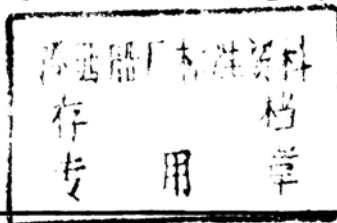 厂标准资料
存档
专用章